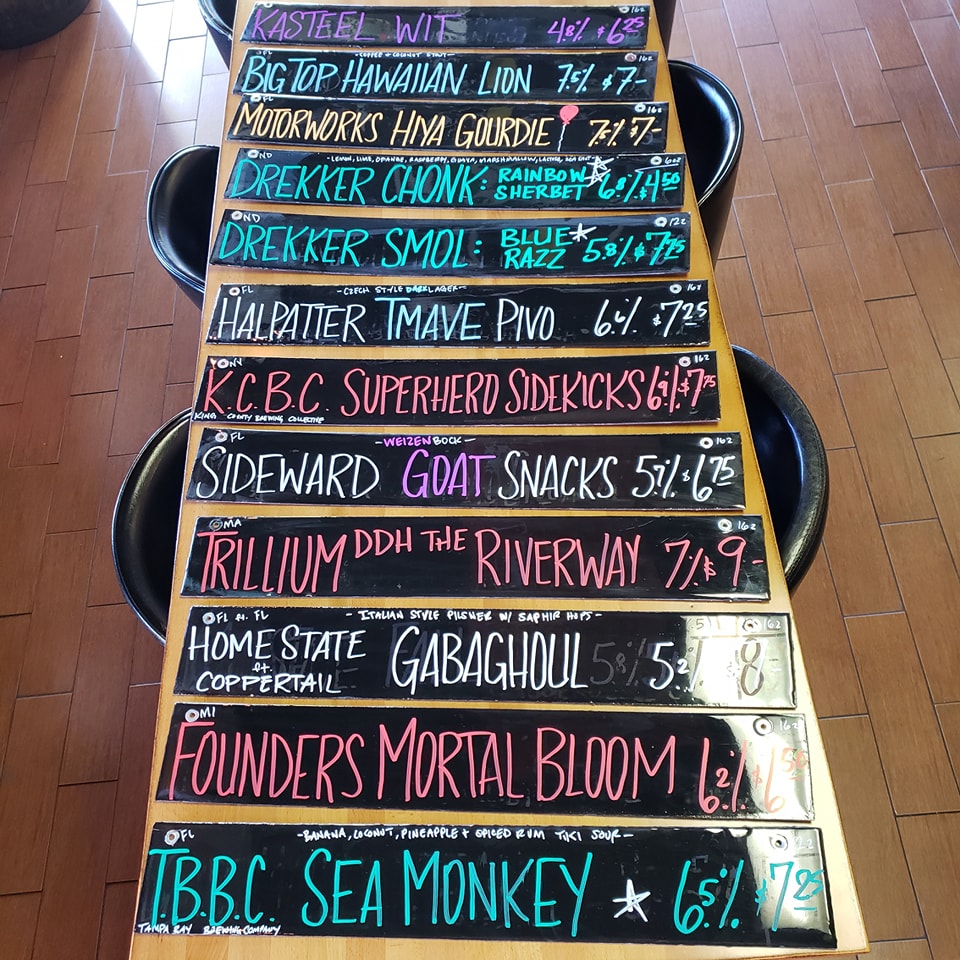 KASTEEL WIT 4.8% $6.25
FL -COFFEE + COCONUT STOUT- 16z
BIG TOP HAWAIIAN LION 7.5% $7-
FL 16z
MOTORWORKS HIYA GOURDIE 7.5% $7-
ND -LEMON, LIME, ORANGE, RASPBERRY, GUAVA, MARSHMALLOW, LACTOSE, SEA SALT- 6oz
DREKKER CHONK: RAINBOW SHERBET 6.8% $4.50
ND 12z
DREKKER SMOL: BLUE RAZZ 5.8% $7.75
FL -CZECH STYLE DARK LAGER- 16z
HALPATTER TMAVE PIVO 6.6% $7.25
NY 16z
K.C.B.C. SUPERHERO SIDEKICKS 6.9% $7.75
KINGS COUNTY BREWING COLLECTIVE
FL -WEIZENBOCK- 16z
SIDEWARD GOAT SNACKS 5.7% $6.75
MA 16z
TRILLIUM DDH THE RIVERWAY 7% $9-
FL FL -ITALIAN STYLE PILSNER W/ SAPHIR HOPS- 16z
HOME STATE & COPPERTAIL GABAGHOUL 5.2% 8-
MI 16z
FOUNDERS MORTAL BLOOM 6.2% $6.50
FL -BANANA, COCONUT, PINEAPPLE + SPICED RUM TIKI SOUR- 12z
T.B.B.C. SEA MONKEY 6.5% $7.25
TAMPA BAY BREWING COMPANY